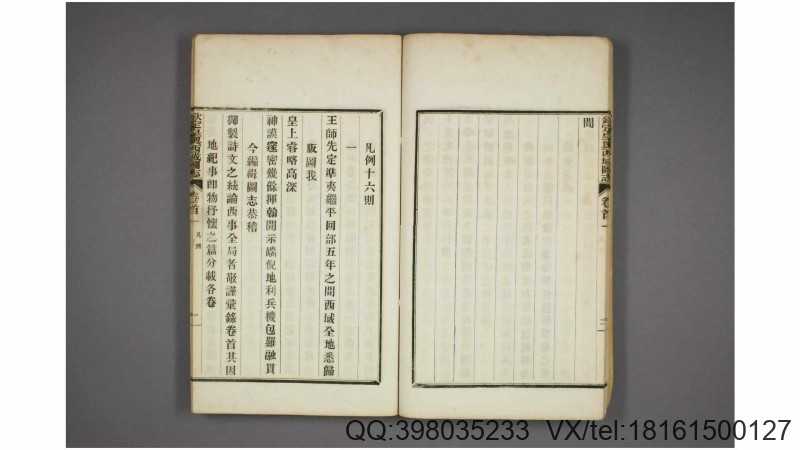 欽定皇輿西域圖志
卷首一
間
凡例十六則
一
王師先定準夷繼平回部五年之間西域全地悉歸
版圖我
皇上睿略高深
神謨邃密幾餘揮翰開示端倪地利兵機包羅融貫
今編緝圖志恭稽
御製詩文之統論西事全局者敬謹彙錄卷首其因
地紀事即物抒懷之篇分載各卷
欽定皇輿西域圖志
卷首一
凡例
QQ:398035233 VX/tel:18161500127